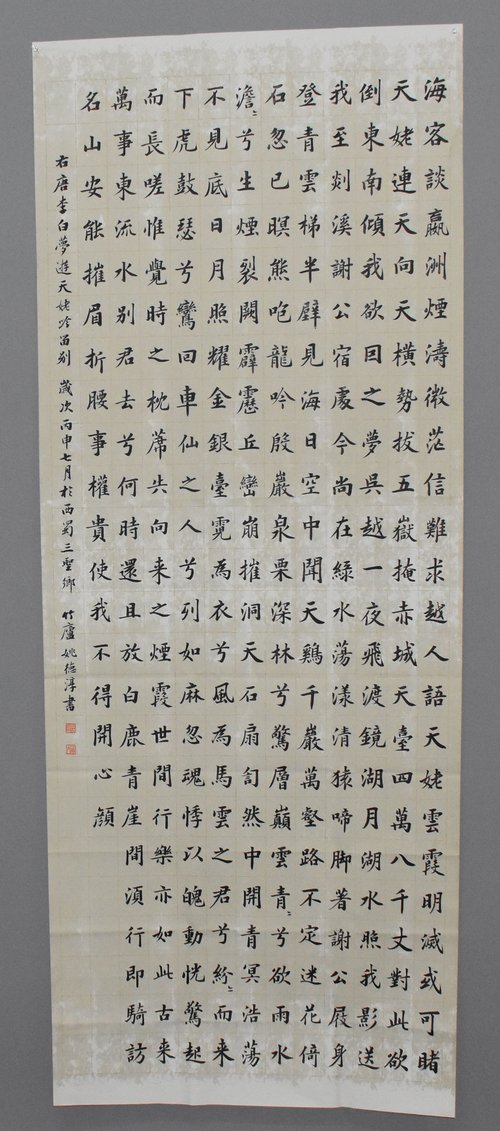 海客談瀛洲煙濤微茫信難求越人語天姥雲霞明滅或可睹
天姥連天向天橫勢拔五嶽掩赤城天臺四萬八千丈對此欲
倒東南傾我欲因之夢吳越一夜飛渡鏡湖月湖水照我影送
我至剡溪謝公宿處今尚在綠水蕩漾清猿啼脚著謝公屐身
登青雲梯半壁見海日空中聞天鷄千巖萬壑路不定迷花倚
石忽已暝熊咆龍吟殷巖泉栗深林兮驚層巔雲青〻兮欲雨水
澹〻兮生煙裂闕霹靂丘巒崩摧洞天石扇訇然中開青冥浩蕩
不見底日月照耀金銀臺霓為衣兮風為馬雲之君兮紛〻而来
下虎鼓瑟兮鸞回車仙之人兮列如麻忽魂悸以魄動恍驚起
而長嗟惟覺時之枕蓆失向来之煙霞世間行樂亦如此古来
萬事東流水别君去兮何時還且放白鹿青崖間須行即騎訪
名山安能摧眉折腰事權貴使我不得開心顔
右唐李白夢遊天姥吟留别 歲次丙申七月於西蜀三聖鄉 竹廬姚德淳書